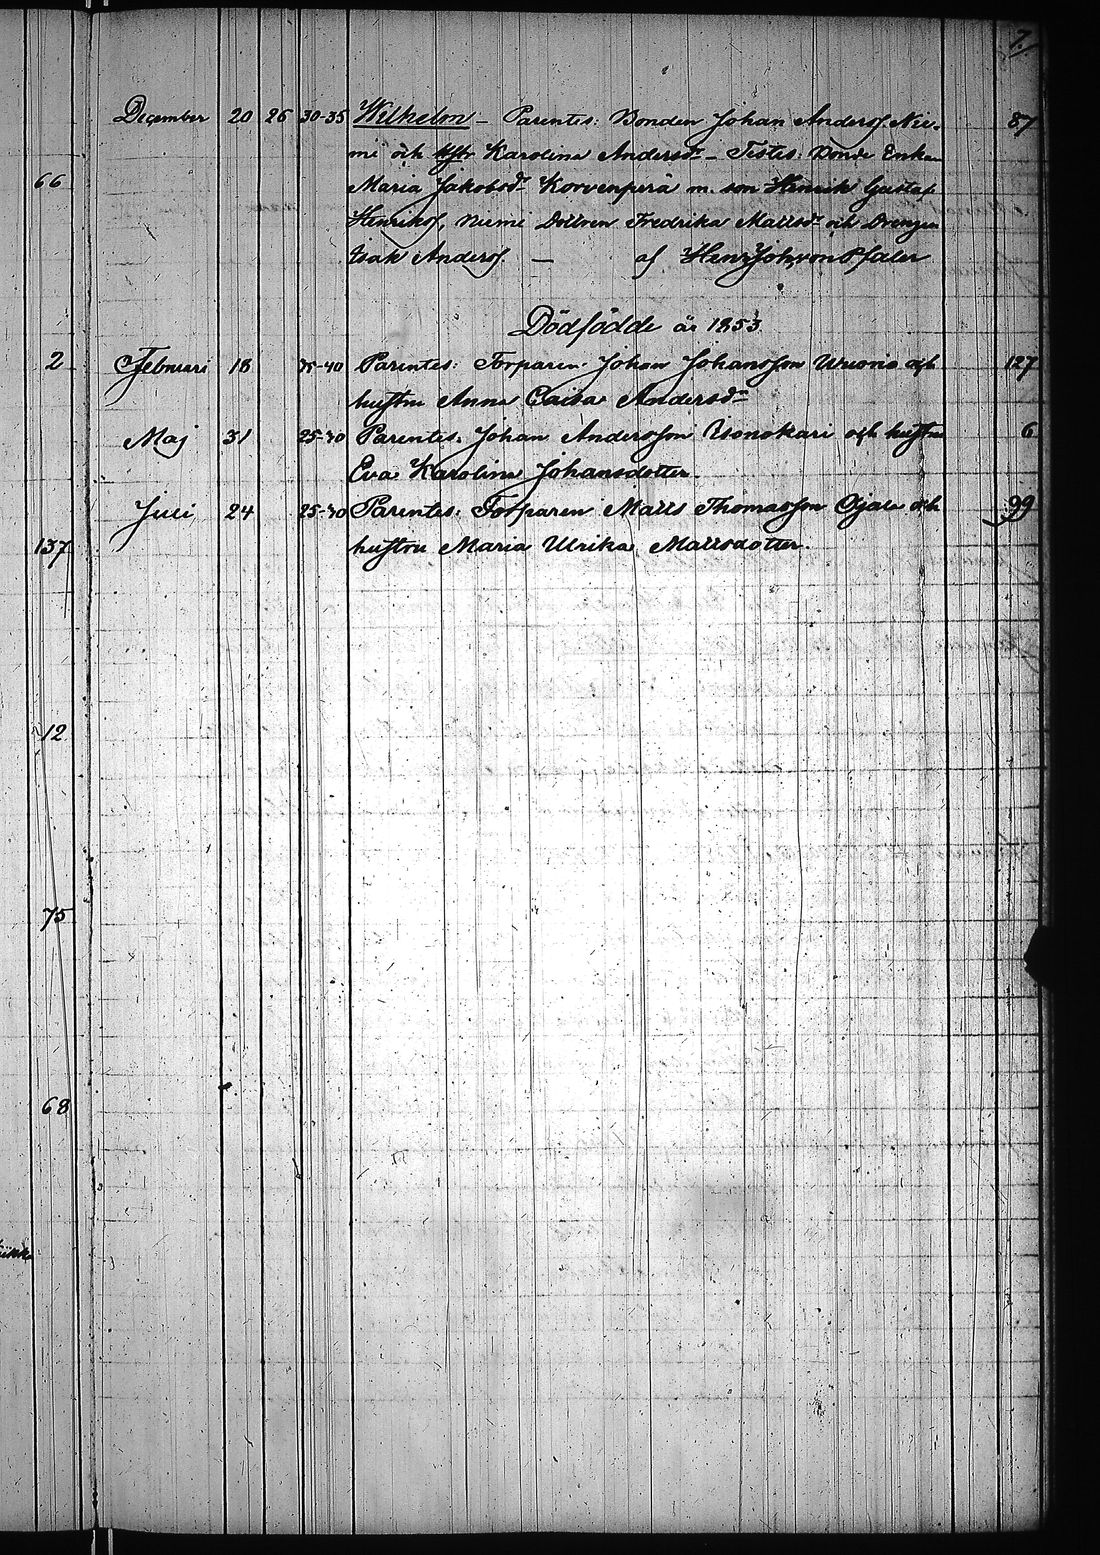 7.
December 20 26 30-35 Wilhelm – Parentes: Bonden Johan Anderss. Nie- 87
mi och Hstr Karolina Andersdr – Testes: Bonde Enkan
66 Maria Jakobsdr Korvenperä m. son Henrik Gustaf
Henrikss, Niemi Dottren Fredrika Mattsdr och Drengen
Isak Anderss — af Henr. Joh. von Pfaler
Dödfödde år 1853
2 Februari 18 35-40 Parentes: Torparen Johan Johansson Wuorio och 127
hustru Anna Caisa Andersdr
Maj 31 25-30 Parentes: Johan Andersson Isonokari och hustru 6
Eva Karolina Johansdotter.
Juli 24 25-30 Parentes: Torparen Matts Thomasson Ojala och 99
137 hustru Maria Ulrika Mattsdotter.
12
75
68